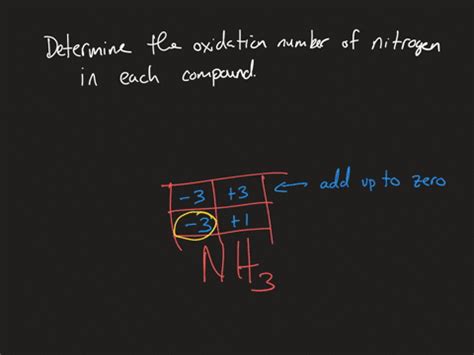 Determine the oxidation number of nitrogen
in each compound.
-3 +3 ← add up to zero
-3 +1
NH₃